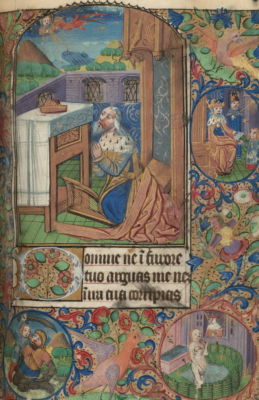 Domine ne ī furore
tuo arguas me ne
in ira tua corripias